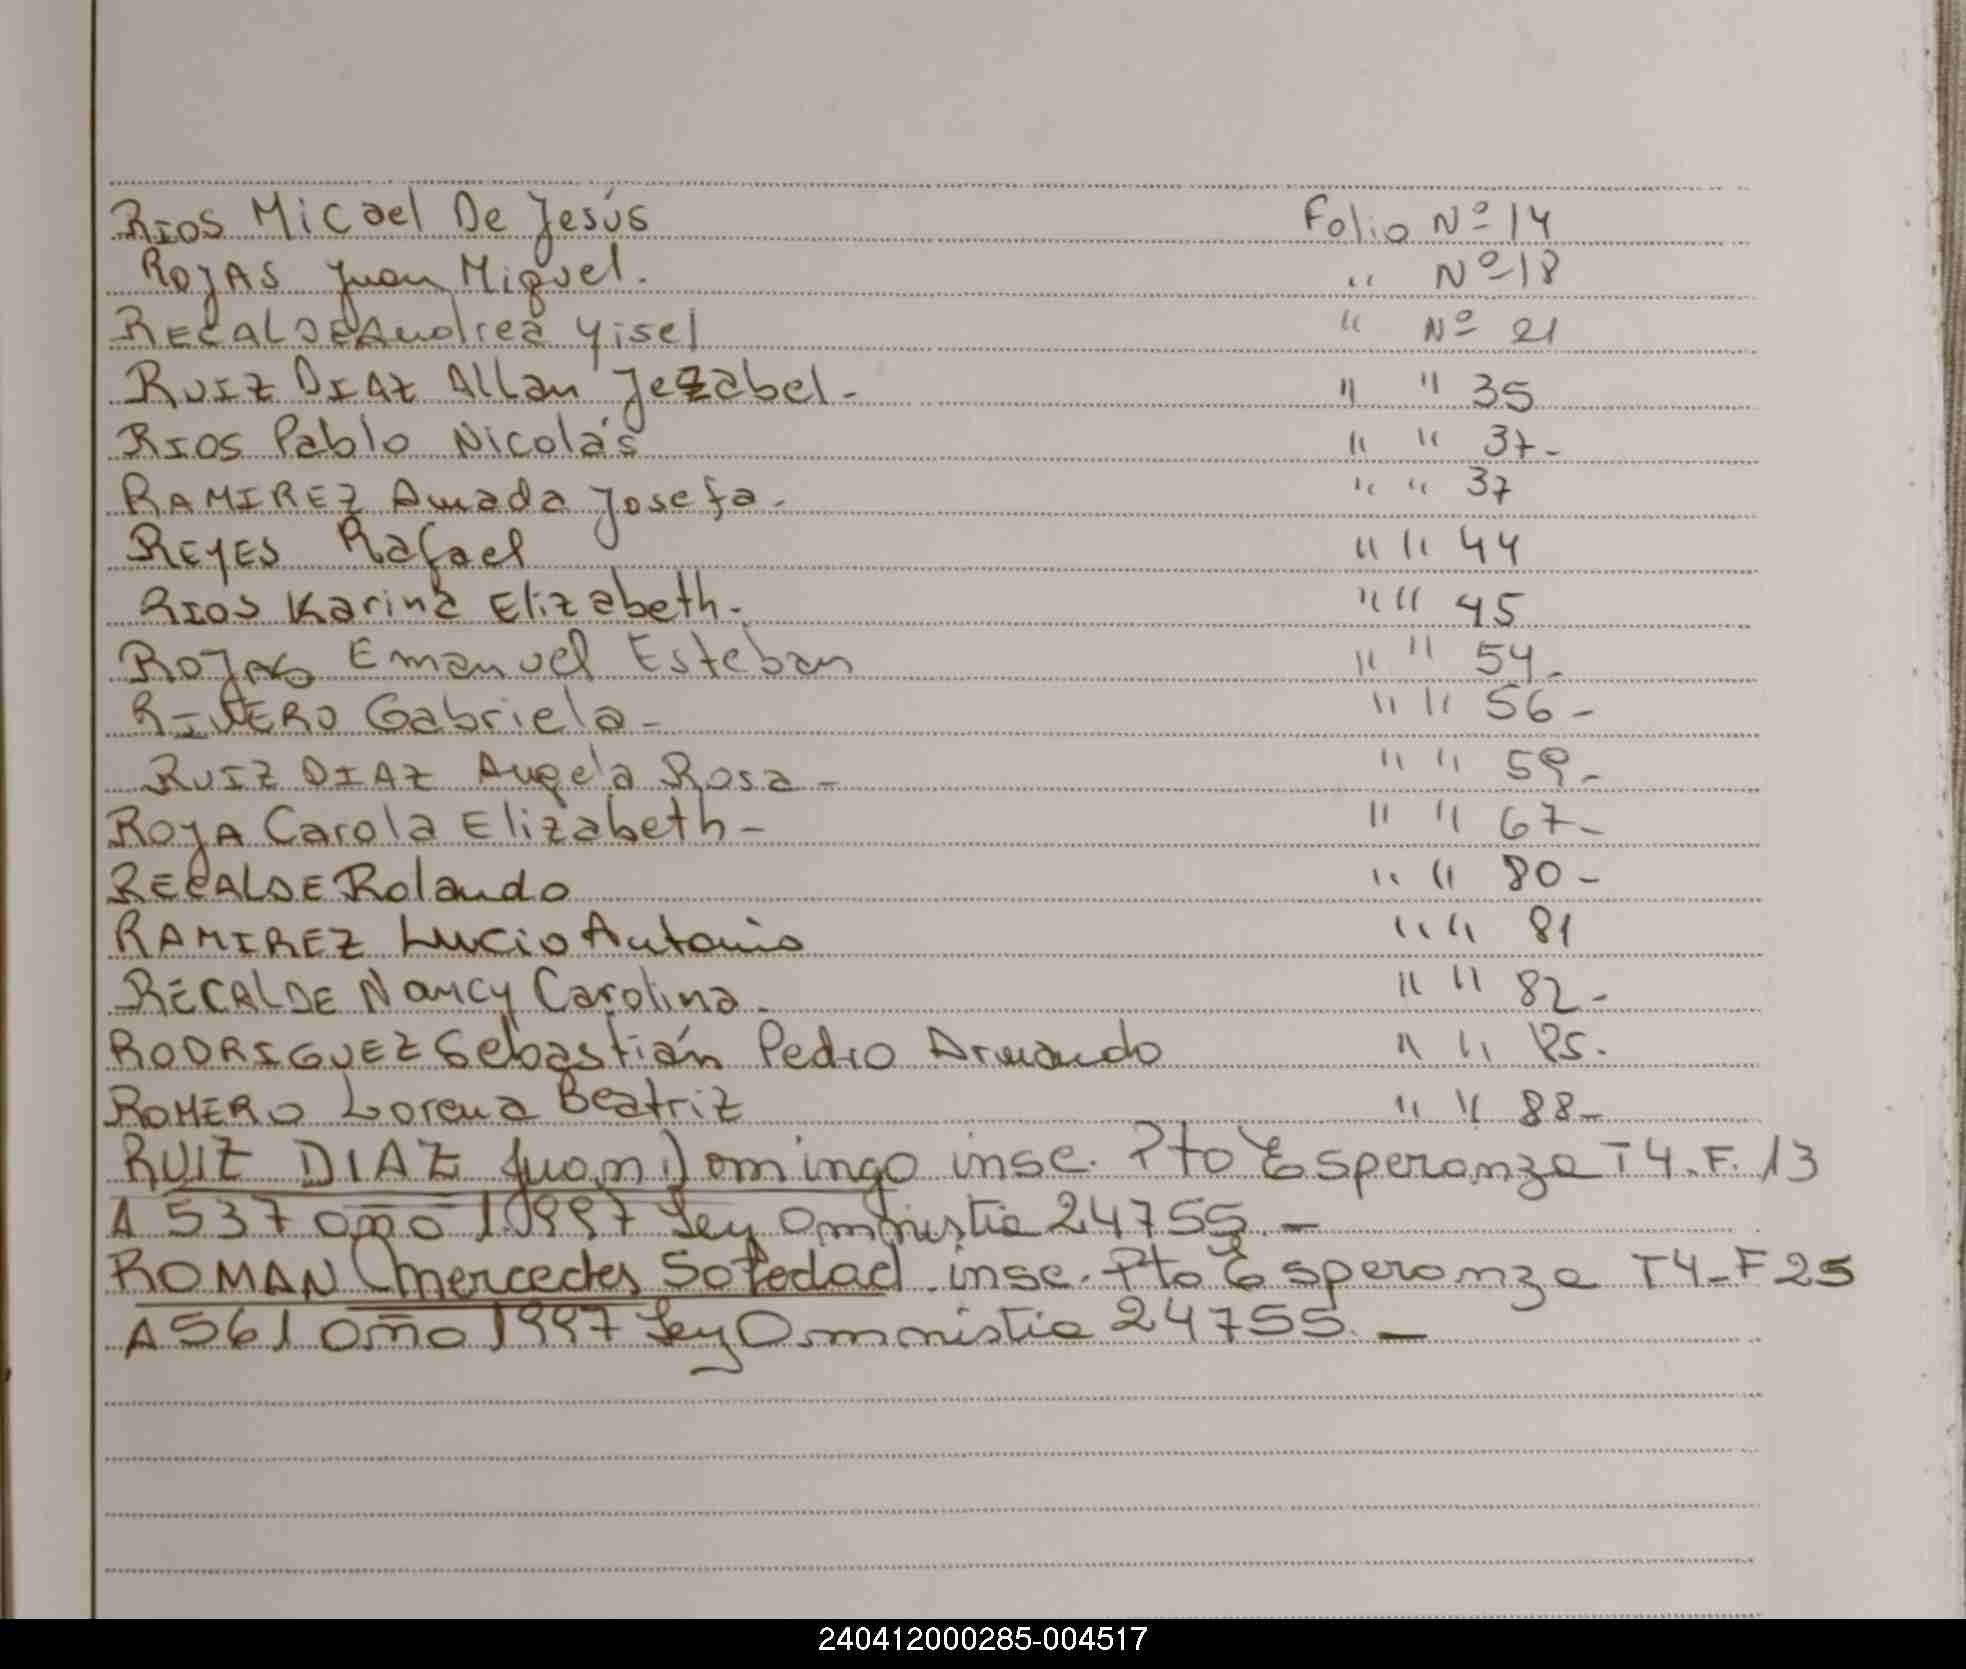 RIOS Micael De Jesús Folio Nº 14
ROJAS Juan Miguel. " Nº 18
RECALDE Andrea Yisel " Nº 21
RUIZ DIAZ Allan Jezabel- " " 35
RIOS Pablo Nicolás " " 37-
RAMIREZ Amada Josefa- " " 37
REYES Rafael " " 44
RIOS Karina Elizabeth. " " 45
ROJAS Emanuel Esteban " " 54-
RIVERO Gabriela- " " 56-
RUIZ DIAZ Angela Rosa- " " 59-
ROJA Carola Elizabeth- " " 67-
RECALDE Rolando " " 80-
RAMIREZ Lucio Antonio " " 81
RECALDE Nancy Carolina. " " 82-
RODRIGUEZ Sebastián Pedro Armando " " 85.
ROMERO Lorena Beatriz " " 88-
RUIZ DIAZ Juan Domingo insc. Pto Esperanza T4. F. 13
A 537 año 1997 Ley amnistia 24755.-
ROMAN Mercedes Soledad. insc. Pto Esperanza T4-F25
A561 año 1997 Ley amnistia 24755.-
240412000285-004517